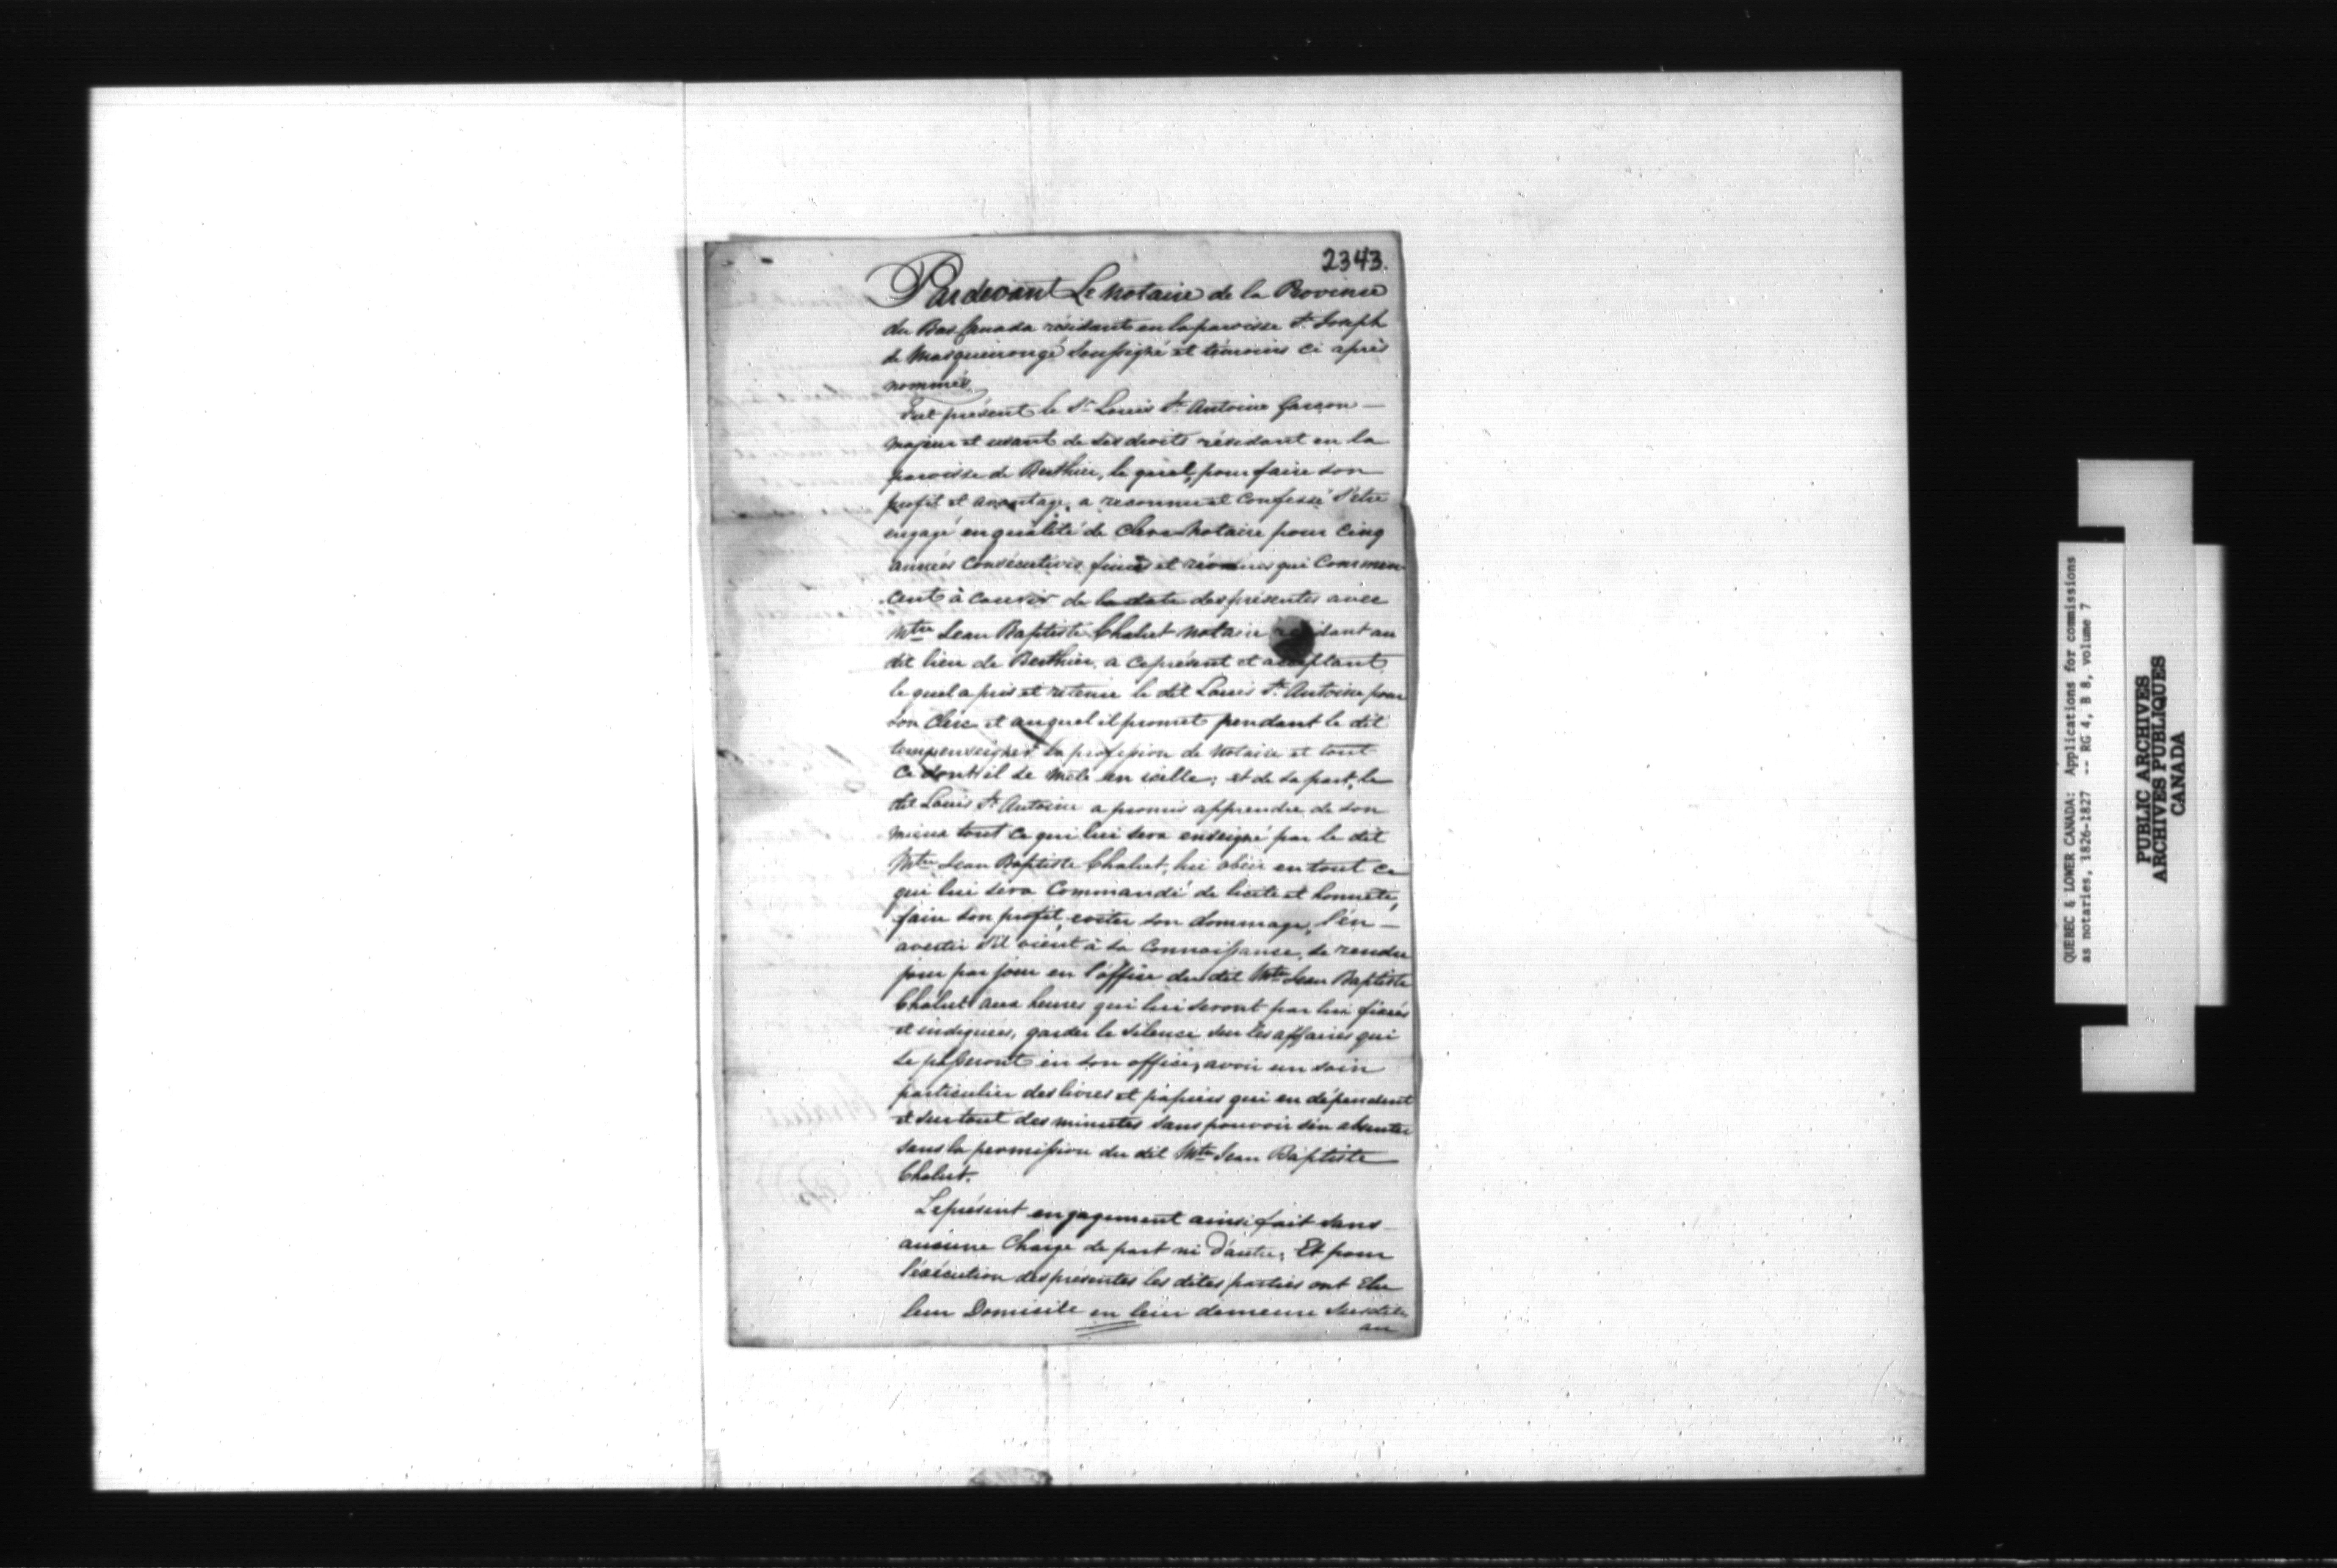 2343.
Pardevant Le Notaire de la Province
du Bas Canada résidant en la paroisse St. Joseph
de Masquinongé Soussigné et témoins ci après
nommés
Fut présent le Sr. Louis St. Antoine Garçon
majeur et usant de ses droits résidant en la
paroisse de Berthier, le quel, pour faire son
profit et avantage, a reconnu et Confessé s'etre
engagé en qualité de Clerc Notaire pour Cinq
années Consécutives finies et révolues qui Commen
cent à courir de la date des présentes avec
Mtre Jean Baptiste Chalut Notaire résidant au
dit lieu de Berthier, a ce présent et acceptant
le quel a pris et retenu le dit Louis St. Antoine pour
son Clerc et auquel il promet pendant le dit
temps enseigner la profession de Notaire et tout
Ce dont il se mêle en icelle; et de sa part, le
dit Louis St. Antoine a promis apprendre de son
mieux tout ce qui lui sera enseigné par le dit
Mtre Jean Baptiste Chalut, lui obéir en tout ce
qui lui sera Commandé de licite et honnete,
faire son profit, eviter son dommage, l'en
avertir s'il vient à sa Connaissance, se rendre
jour par jour en l'office du dit Mtre Jean Baptiste
Chalut aux heures qui lui seront par lui fixées
et indiquées, garder le silence sur les affaires qui
se passeront en son office, avoir un soin
particulier des livres et papiers qui en dépendent
et surtout des minutes sans pouvoir s'en absenter
sans la permission du dit Mtre Jean Baptiste
Chalut.
Le présent engagement ainsi fait sans
aucune Charge de part ni d'autre; Et pour
l'éxécution des présentes les dites parties ont Elu
leur Domicile en leur demeure Susdite
au
QUEBEC & LOWER CANADA: Applications for commissions
as notaries, 1826-1827 -- RG 4, B 8, volume 7
PUBLIC ARCHIVES
ARCHIVES PUBLIQUES
CANADA